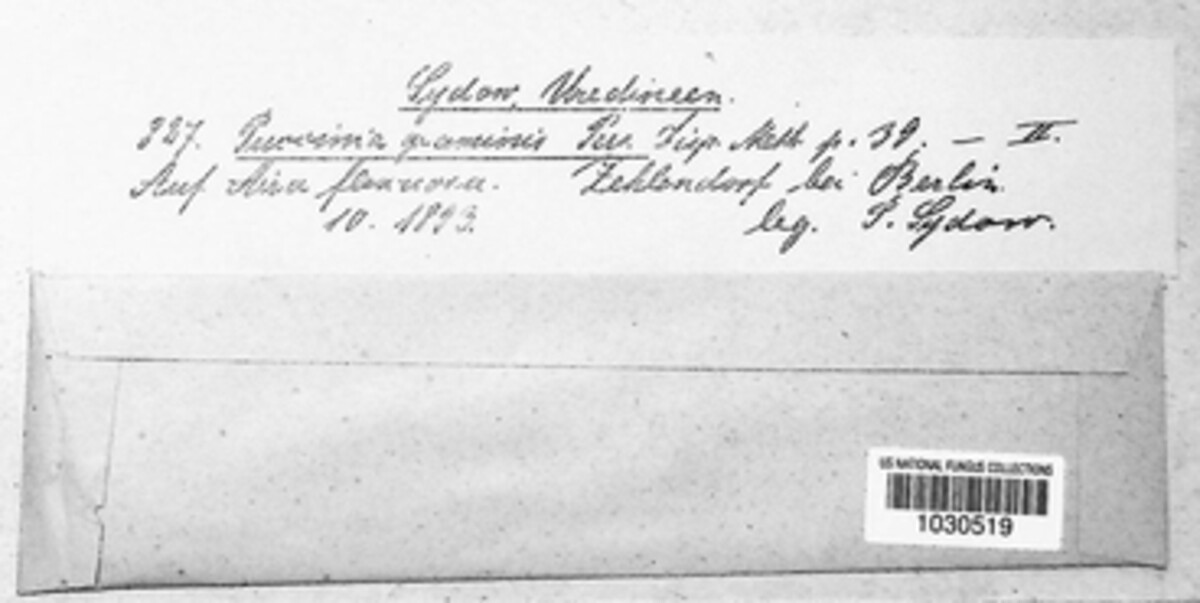 Sydow, Uredineen.
827. Puccinia graminis Pers. Disp. Meth. p. 39. — II.
Auf Aira flexuosa. Zehlendorf bei Berlin.
10. 1893. leg. P. Sydow.
US NATIONAL FUNGUS COLLECTIONS
1030519